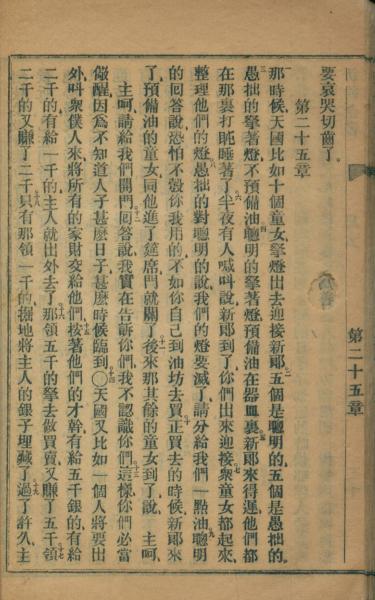 要哀哭切齒了。
第二十五章
那時候、天國比如十個童女、擎燈出去迎接新郞。五個是聰明的、五個是愚拙的。
愚拙的擎著燈、不預備油。聰明的擎著燈、預備油在器皿裏。新郞來得遲、他們都
在那裏打盹睡著了。半夜有人喊叫說、新郞到了、你們出來迎接。衆童女都起來、
整理他們的燈。愚拙的對聰明的說、我們的燈要滅了、請分給我們一點油。聰明
的回答說、恐怕不彀你我用的、不如你自己到油坊去買。正買去的時候、新郞來
了。預備油的童女、同他進了筵席、門就關了。後來那其餘的童女到了、說、主呵、
主呵、請給我們開門。回答說、我實在告訴你們、我不認識你們。這樣、你們必當
儆醒、因爲不知道人子甚麼日子、甚麼時候臨到。〇天國又比如一個人將要出
外、叫衆僕人來、將所有的家財交給他們。按著他們的才幹、有給五千銀的、有給
二千的、有給一千的、主人就出外去了。那領五千的、拏去做買賣、又賺了五千。領
二千的、又賺了二千。只有那領一千的、掘地將主人的銀子埋藏了。過了許久、主
第二十五章